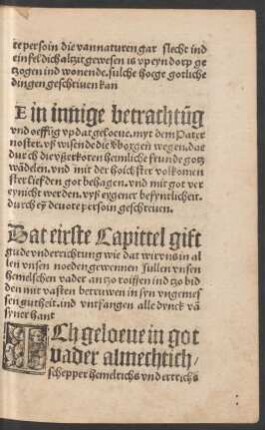 te persoin die van naturen gar slecht ind
einfeldich altzit gewesen is vp eyn dorp ge
tzogen ind wonende. sulche hoege gotliche
dingen geschriuen kan
Ein innige betrachtūg
vnd oeffūg vp dat geloeue. myt dem Pater
noster. vß wisende die v̄borgen wegen. dat
durch die vßerkoren heimliche frunde gotz
wādelen. vnd mit der hoichster volkomen
ster liefden got behagen. vnd mit got ver
eynicht werden. vyß eigener befyntlicheit.
durch eyn deuote persoin geschreuen.
Dat eirste Capittel gift
gude vnderrichtung wie dat wir vns in al
len vnsen noeden gewennen sullen vnsen
hemelschen vader an tzo roiffen ind tzo bid
den mit vasten betruwen in syn vngemes
sen gutheit. ind vntfangen alle dynck vā
syner hant
ICh geloeue in got
vader almechtich/
schepper hemelrichs vnd ertrichs